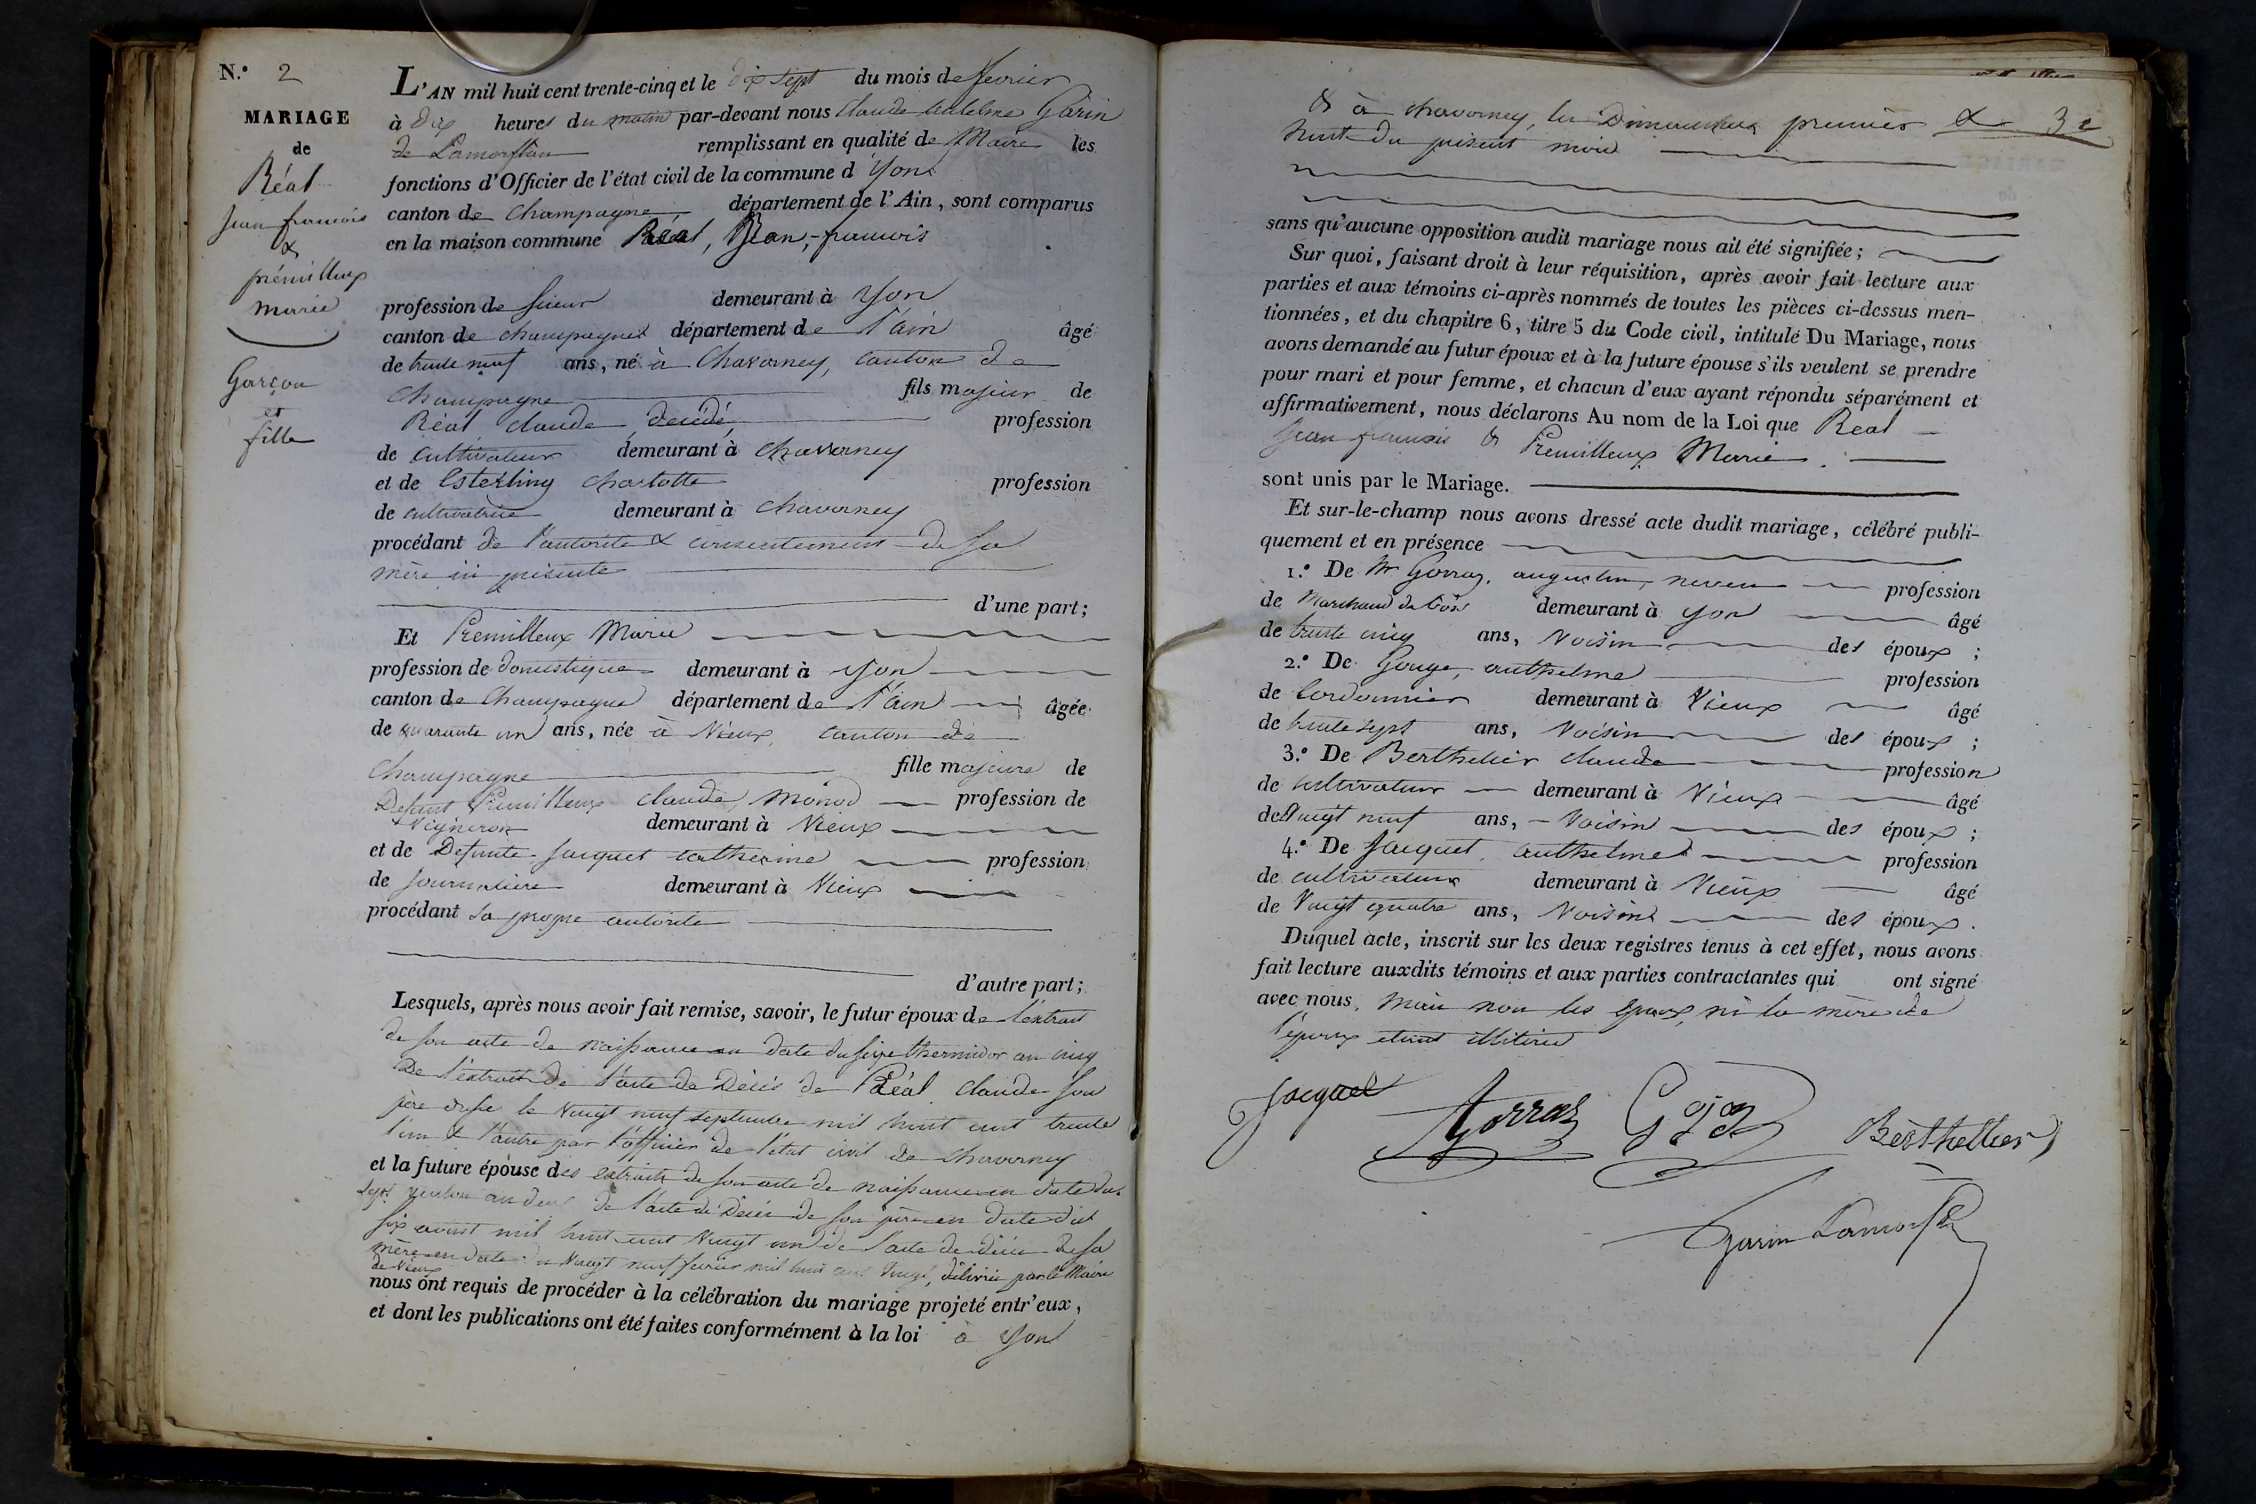 N.º 2
MARIAGE
de
Réal
Jean francois
&
prémilleux
marie
Garçon
et
fille
L'AN mil huit cent trente-cinq et le dix sept du mois de fevrier
à dix heures du matin par-devant nous Claude anthelme Garin
de Lamorflan remplissant en qualité de Maire les
fonctions d'Officier de l'état civil de la commune d'Yon
canton de Champagne département de l'Ain, sont comparus
en la maison commune Réal, Jean, francois
profession de scieur demeurant à Yon
canton de champagne département de l'ain âgé
de trente neuf ans, né à Chavorney, canton de
Champagne fils majeur de
Réal claude, décédé, profession
de cultivateur demeurant à Chavorney
et de Esterling Charlotte profession
de cultivatrice demeurant à Chavorney
procédant de l'autorité & consentement de sa
mère ici présente
d'une part;
Et Premilleux Marie
profession de domestique demeurant à Yon
canton de Champagne département de l'ain âgée
de quarante un ans, née à Vieux, canton de
Champagne fille majeure de
Defunt Premilleux claude, monod profession de
Vigneron demeurant à Vieux
et de Defunte Jacquet catherine profession
de Journaliere demeurant à Vieux
procédant sa propre autorité
d'autre part;
Lesquels, après nous avoir fait remise, savoir, le futur époux de l'extrait
de son acte de naissance en date du seize thermidor an cinq
De l'extrait de l'acte de Décès de Réal claude son
père du le vingt neuf septembre mil huit cent trente
l'un & l'autre par l'officier de l'état civil de Chavorney
et la future épouse des extraits de son acte de naissance en date du
sept ventose an deux de l'acte de Décès de son père en date du
six aoust mil huit cent vingt un de l'acte de décès de sa
mère en date du vingt neuf fevrier mil huit cent vingt, délivrée par le Maire
de Vieux
nous ont requis de procéder à la célébration du mariage projeté entr'eux,
et dont les publications ont été faites conformément à la loi à Yon
& à Chavorney, les Dimanches premier &
huit du présent mois
sans qu'aucune opposition audit mariage nous ait été signifiée;
Sur quoi, faisant droit à leur réquisition, après avoir fait lecture aux
parties et aux témoins ci-après nommés de toutes les pièces ci-dessus men-
tionnées, et du chapitre 6, titre 5 du Code civil, intitulé Du Mariage, nous
avons demandé au futur époux et à la future épouse s'ils veulent se prendre
pour mari et pour femme, et chacun d'eux ayant répondu séparément et
affirmativement, nous déclarons Au nom de la Loi que Réal
Jean francois & Premilleux Marie
sont unis par le Mariage.
Et sur-le-champ nous avons dressé acte dudit mariage, célébré publi-
quement et en présence
1.º De Mr Gorraz, augustin, neveu profession
de Marchand de bois demeurant à Yon âgé
de trente cinq ans, Voisin des époux;
2.º De Gouge, anthelme profession
de Cordonnier demeurant à Vieux âgé
de trente sept ans, Voisin des époux;
3.º De Berthelier claude profession
de cultivateur demeurant à Vieux âgé
de vingt neuf ans, Voisin des époux;
4.º De Jacquet anthelme profession
de cultivateur demeurant à Vieux âgé
de Vingt quatre ans, Voisins des époux.
Duquel acte, inscrit sur les deux registres tenus à cet effet, nous avons
fait lecture auxdits témoins et aux parties contractantes qui ont signé
avec nous. Mais non les époux, ni la mère de
l'époux étant illitirés
Jacquet Gorraz Berthellier
Garin Lamorfla